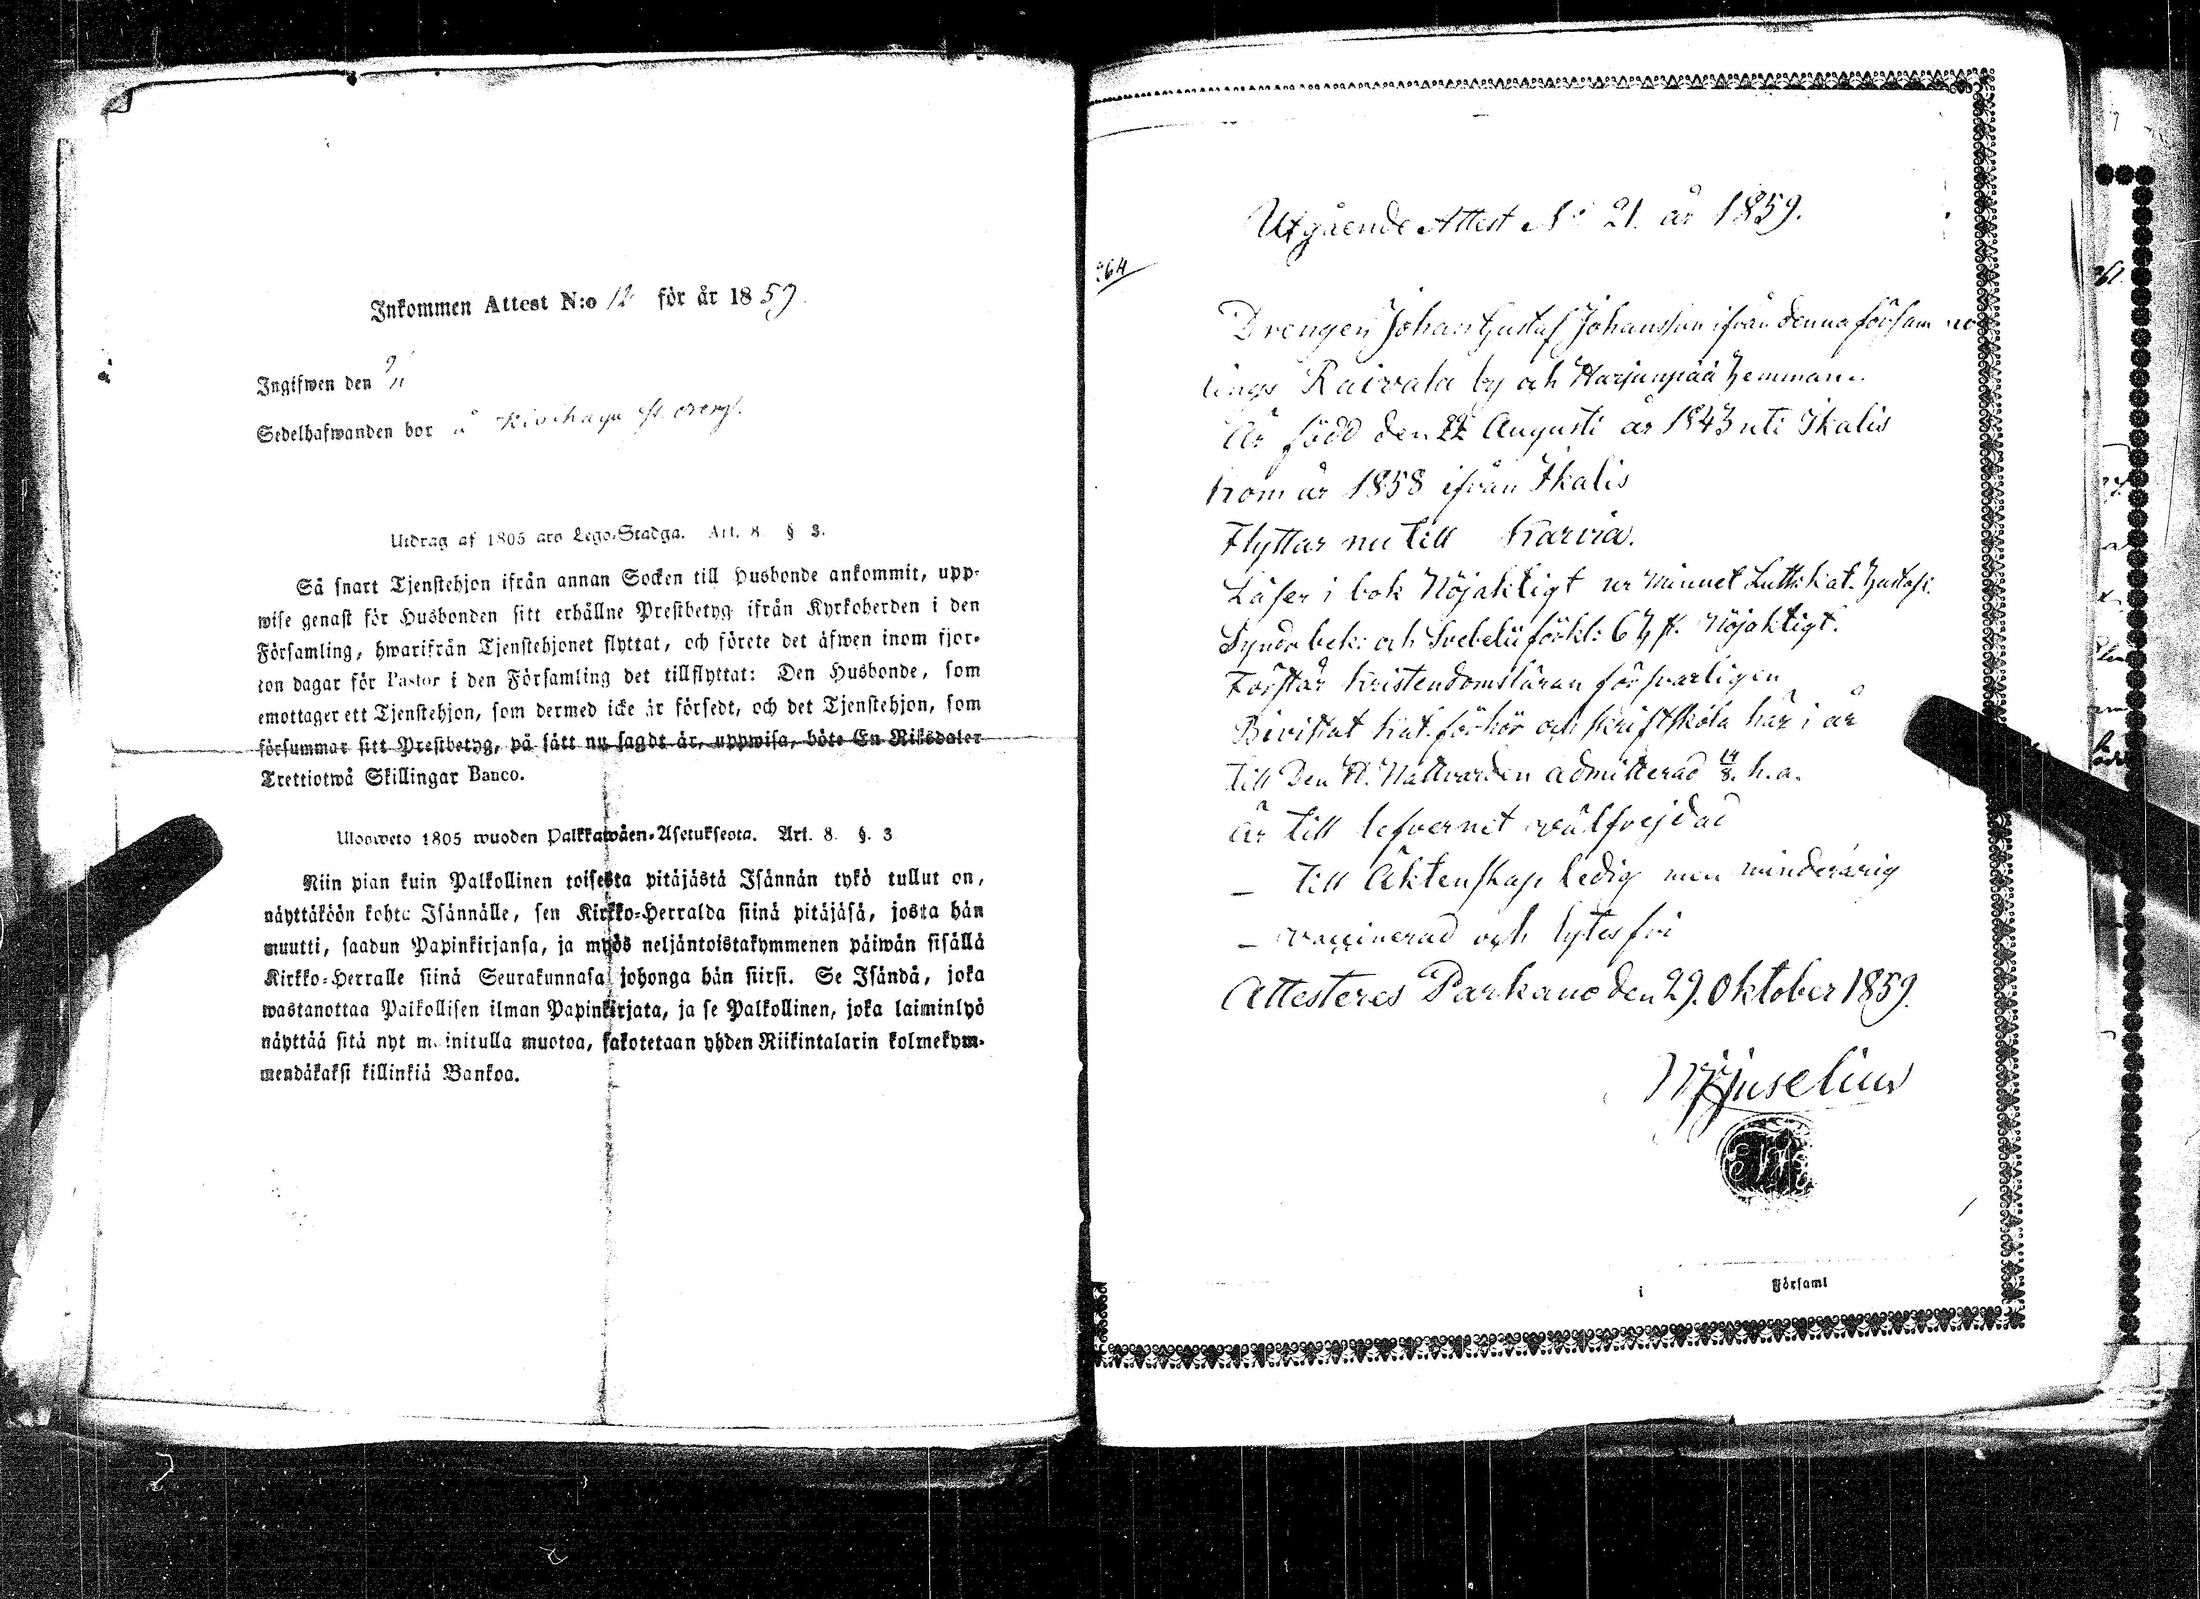 Inkommen Attest N:o 12 för år 1859.
Ingifwen den
Sedelhafwanden bor å
Utdrag af 1805 års Lego-Stadga. Art. 8. § 3.
Så snart Tjenstehjon ifrån annan Socken till Husbonde ankommit, upp-
wise genast för Husbonden sitt erhållne Prestbetyg ifrån Kyrkoherden i den
Församling, hwarifrån Tjenstehjonet flyttat, och förete det äfwen inom fjor-
ton dagar för Pastor i den Församling det tillflyttat: Den Husbonde, som
emottager ett Tjenstehjon, som dermed icke är försedt, och det Tjenstehjon, som
försummar sitt Prestbetyg, på sätt nu sagdt är, uppwisa, böte En Riksdaler
Trettiotwå Skillingar Banco.
Ulosweto 1805 wuoden Palkkawäen-Asetuksesta. Art. 8. §. 3
Niin pian kuin Palkollinen toisesta pitäjästä Isännän tykö tullut on,
näyttäköön kohta Isännälle, sen Kirkko-Herralda siinä pitäjäsä, josta hän
muutti, saadun Papinkirjansa, ja myös neljäntoistakymmenen päiwän sisällä
Kirkko-Herralle siinä Seurakunnasa johonga hän siirsi. Se Isändä, joka
wastanottaa Palkollisen ilman Papinkirjata, ja se Palkollinen, joka laiminlyö
näyttää sitä nyt mainitulla muotoa, sakotetaan yhden Riikintalarin kolmekym-
mendäkaksi killinkiä Bankoa.
Utgående Attest No 21. år 1859.
264
Drengen Johan Gustaf Johansson ifrån denna försam
lings Raivala by och Harjunpää hemman.
Är född den 22 Augusti år 1843 uti Ikalis
kom år 1858 ifrån Ikalis
Flyttar nu till Karvia.
Läser i bok Nöjaktigt ur minnet Luth. kat. Hustafl.
Symb. bek: och Svebelii förkl: 6 h. st. Nöjaktigt.
Förstår Kristendomsläran försvarligen
Bivistat kat. förhör och skriftskola här i år
till Den H. Nattvarden admitterad 14/8. h. a.
är till lefvernet välfrejdad
_ till Äktenskap ledig men minderårig
_ vaccinerad och lytesfri
Attesteres Parkano den 29. Oktober 1859.
Juselius
i Församl